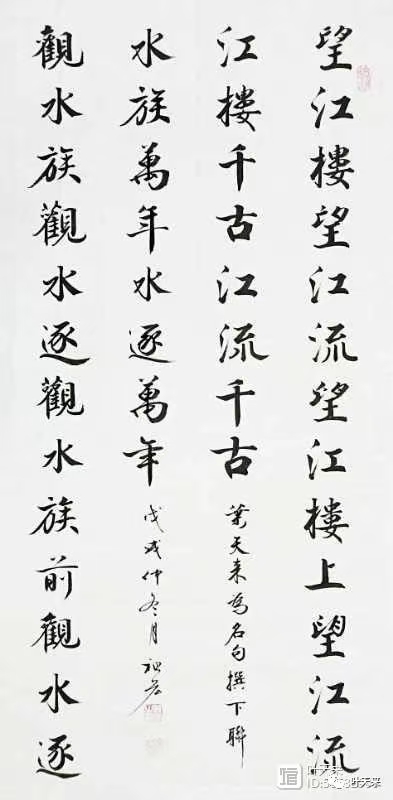 望江樓望江流望江樓上望江流
江樓千古江流千古
葉天来為名句撰下聯
觀水族觀水逐觀水族前觀水逐
水族萬年水逐萬年
戊戌仲冬月
叶天来